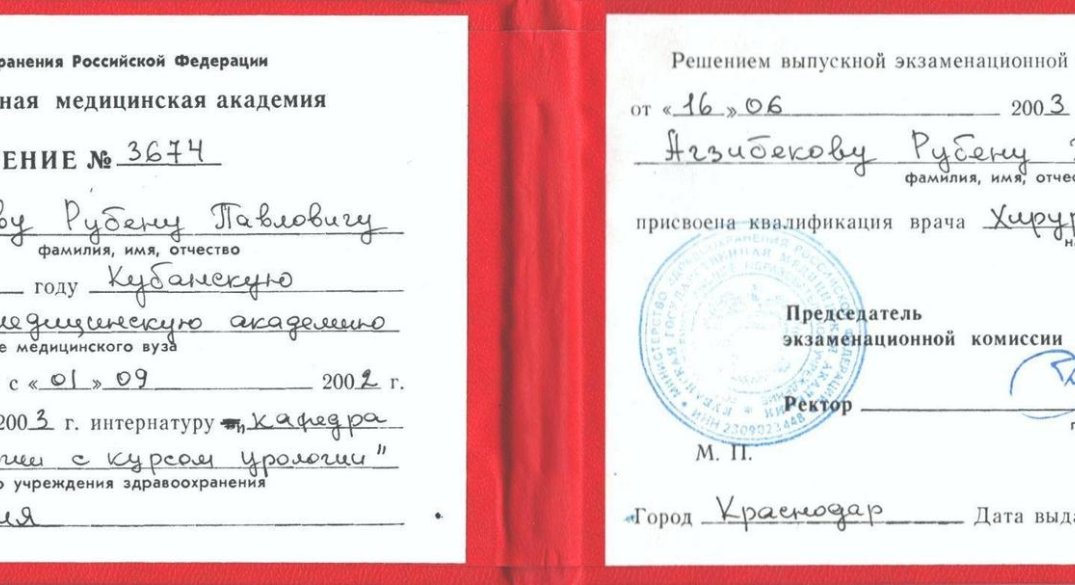 ранения Российской Федерации
ная медицинская академия
ЕНИЕ № 3674
ву Рубену Павловичу
фамилия, имя, отчество
году Кубанскую
медицинскую академию
е медицинского вуза
с «01» 09 2002 г.
2003 г. интернатуру и, кафедра
гии с курсом урологии"
о учреждения здравоохранения
ия
Решением выпускной экзаменационной
от «16» 06 2003
Агзибекову Рубену
фамилия, имя, отчес
присвоена квалификация врача Хирур
н
Председатель
экзаменационной комиссии
Ректор
М. П.
Город Краснодар Дата выда
ИНН 2309023448